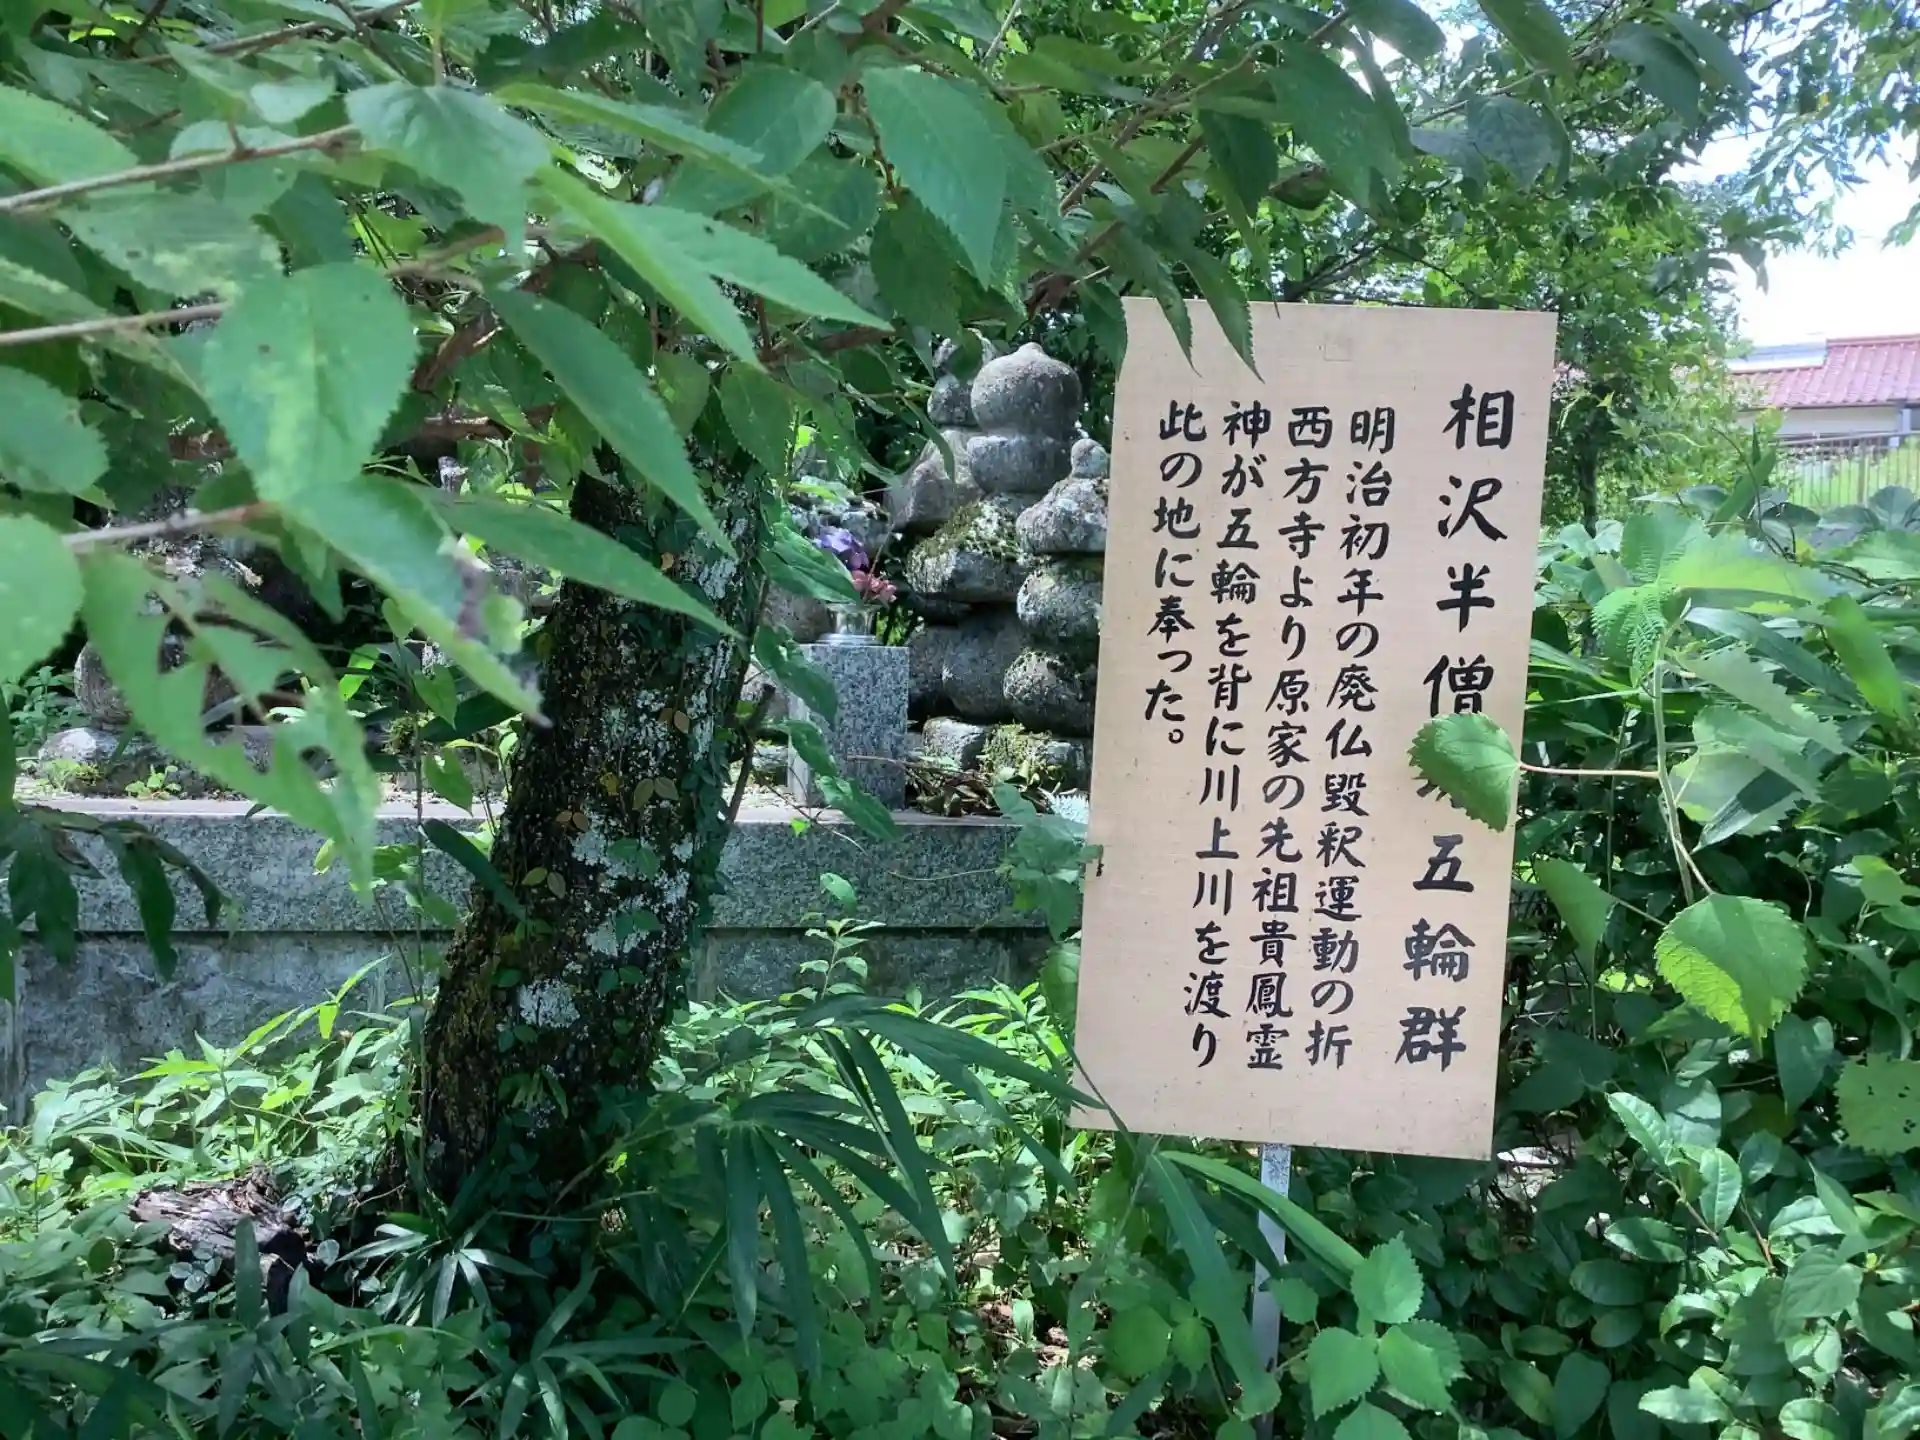 相沢半僧
五輪群
明治初年の廃仏毀釈運動の折
西方寺より原家の先祖貴鳳霊
神が五輪を背に川上川を渡り
此の地に奉った。